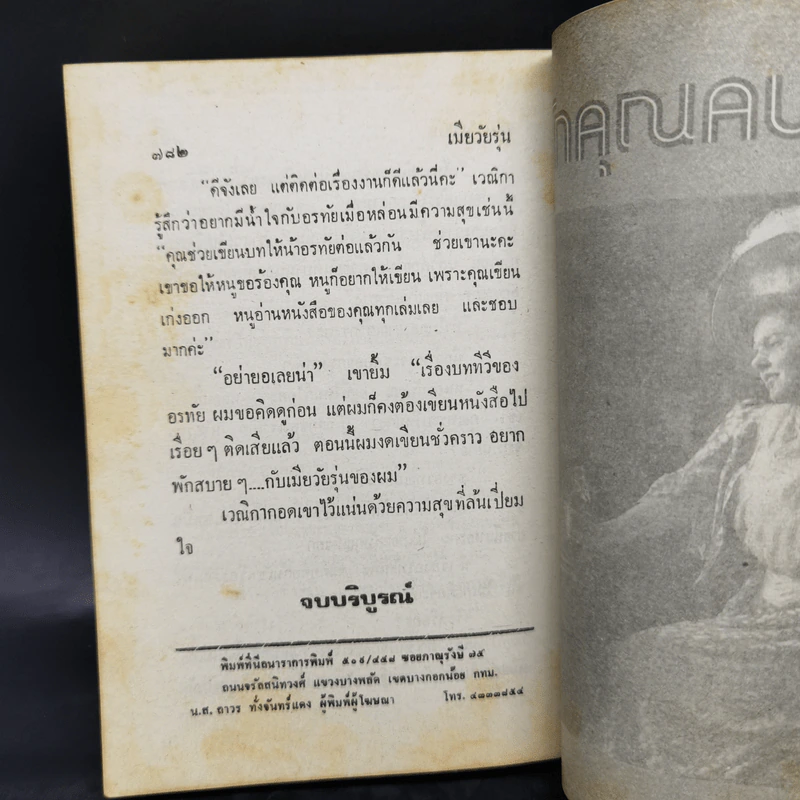 ๗๘๒
เมียวัยรุ่น
“ดีจังเลย แต่ติดต่อเรื่องงานก็ดีแล้วนี่คะ” เวณิกา
รู้สึกว่าอยากมีน้ำใจกับอรทัยเมื่อหล่อนมีความสุขเช่นนี้
“คุณช่วยเขียนบทให้น้าอรทัยต่อแล้วกัน ช่วยเขานะคะ
เขาขอให้หนูขอร้องคุณ หนูก็อยากให้เขียน เพราะคุณเขียน
เก่งออก หนูอ่านหนังสือของคุณทุกเล่มเลย และชอบ
มากค่ะ”
“อย่ายอเลยน่า” เขายิ้ม “เรื่องบททีวีของ
อรทัย ผมขอคิดดูก่อน แต่ผมก็คงต้องเขียนหนังสือไป
เรื่อย ๆ ติดเสียแล้ว ตอนนี้ผมงดเขียนชั่วคราว อยาก
พักสบาย ๆ....กับเมียวัยรุ่นของผม”
เวณิกากอดเขาไว้แน่นด้วยความสุขที่ล้นเปี่ยม
ใจ
จบบริบูรณ์
พิมพ์ที่นีลนาราการพิมพ์ ๕๐๑/๔๕๘ ซอยภาณุรังษี ๗๕
ถนนจรัลสนิทวงศ์ แขวงบางพลัด เขตบางกอกน้อย กทม.
น.ส. ถาวร ทั่งจันทร์แดง ผู้พิมพ์ผู้โฆษณา โทร. ๔๓๓๓๘๕๔